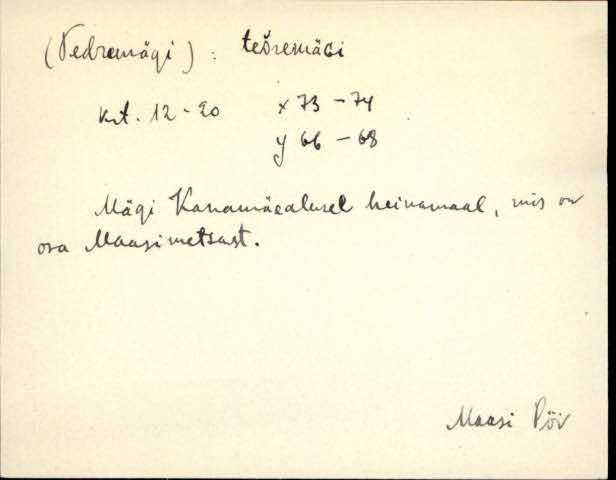 (Tedremägi) : teδremäɢi
krt. 12-20 x 73-74
y 66-68
Mägi Kanamäealusel heinamaal, mis on
osa Maasi metsast.
Maasi Pöi